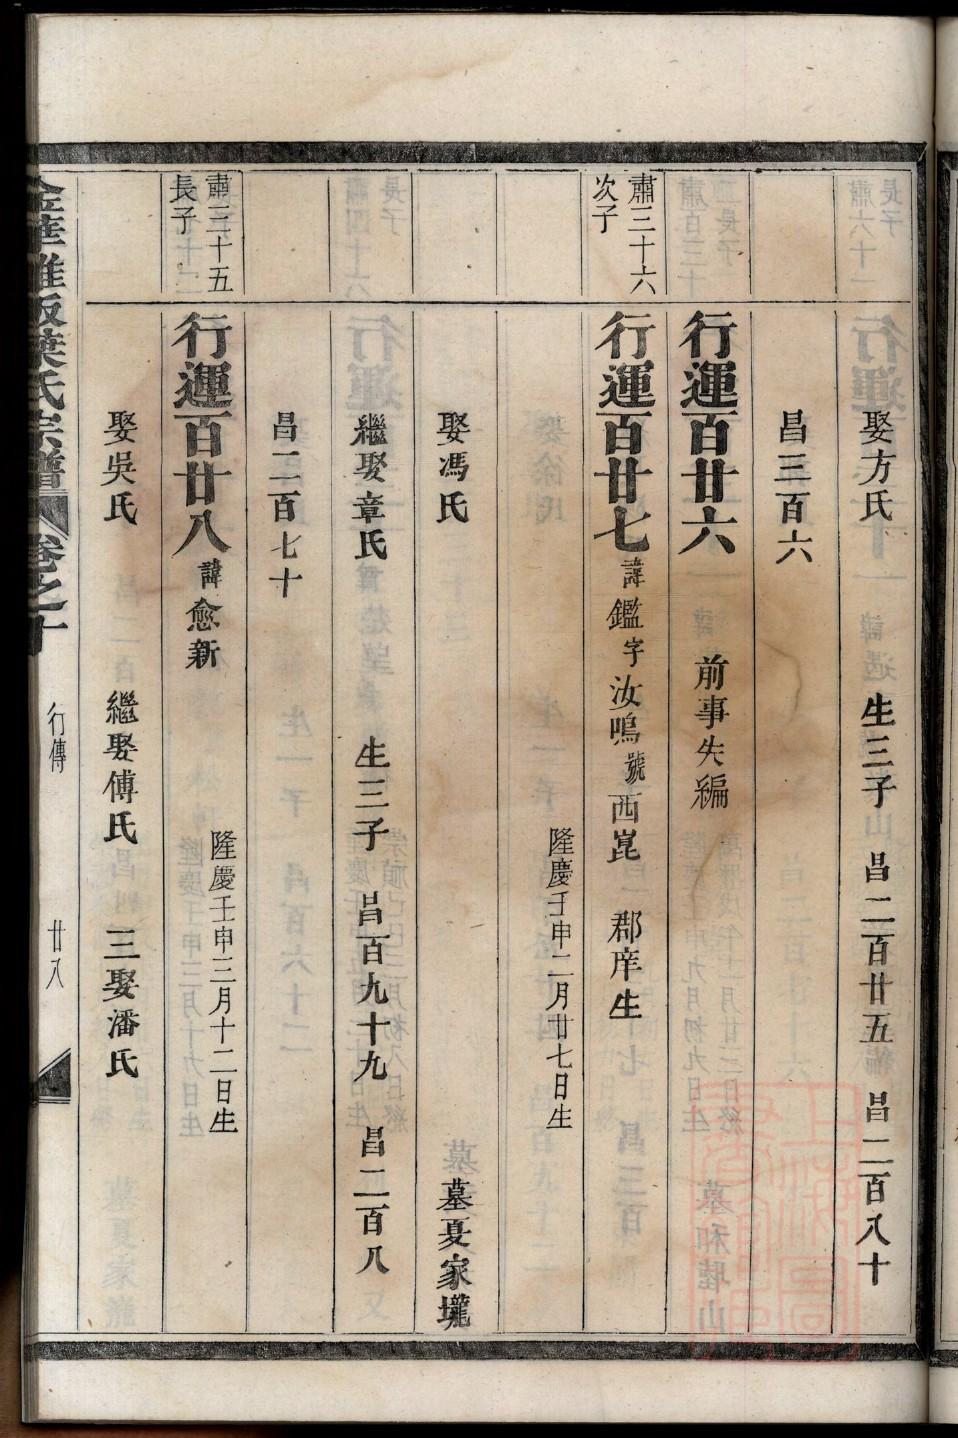 娶方氏 生三子 昌二百廿五 昌二百八十
昌三百六
行運百廿六 前事失編
肅三十六
次子
行運百廿七 諱鑑字汝鳴號西崑 郡庠生
隆慶壬申二月廿七日生
娶馮氏 墓夏家壠
繼娶章氏 生三子 昌百九十九 昌二百八
昌二百七十
肅三十五
長子
行運百廿八 諱愈新
隆慶壬申三月十二日生
娶吳氏 繼娶傅氏 三娶潘氏
葉氏宗譜 卷之十 行傳 廿八